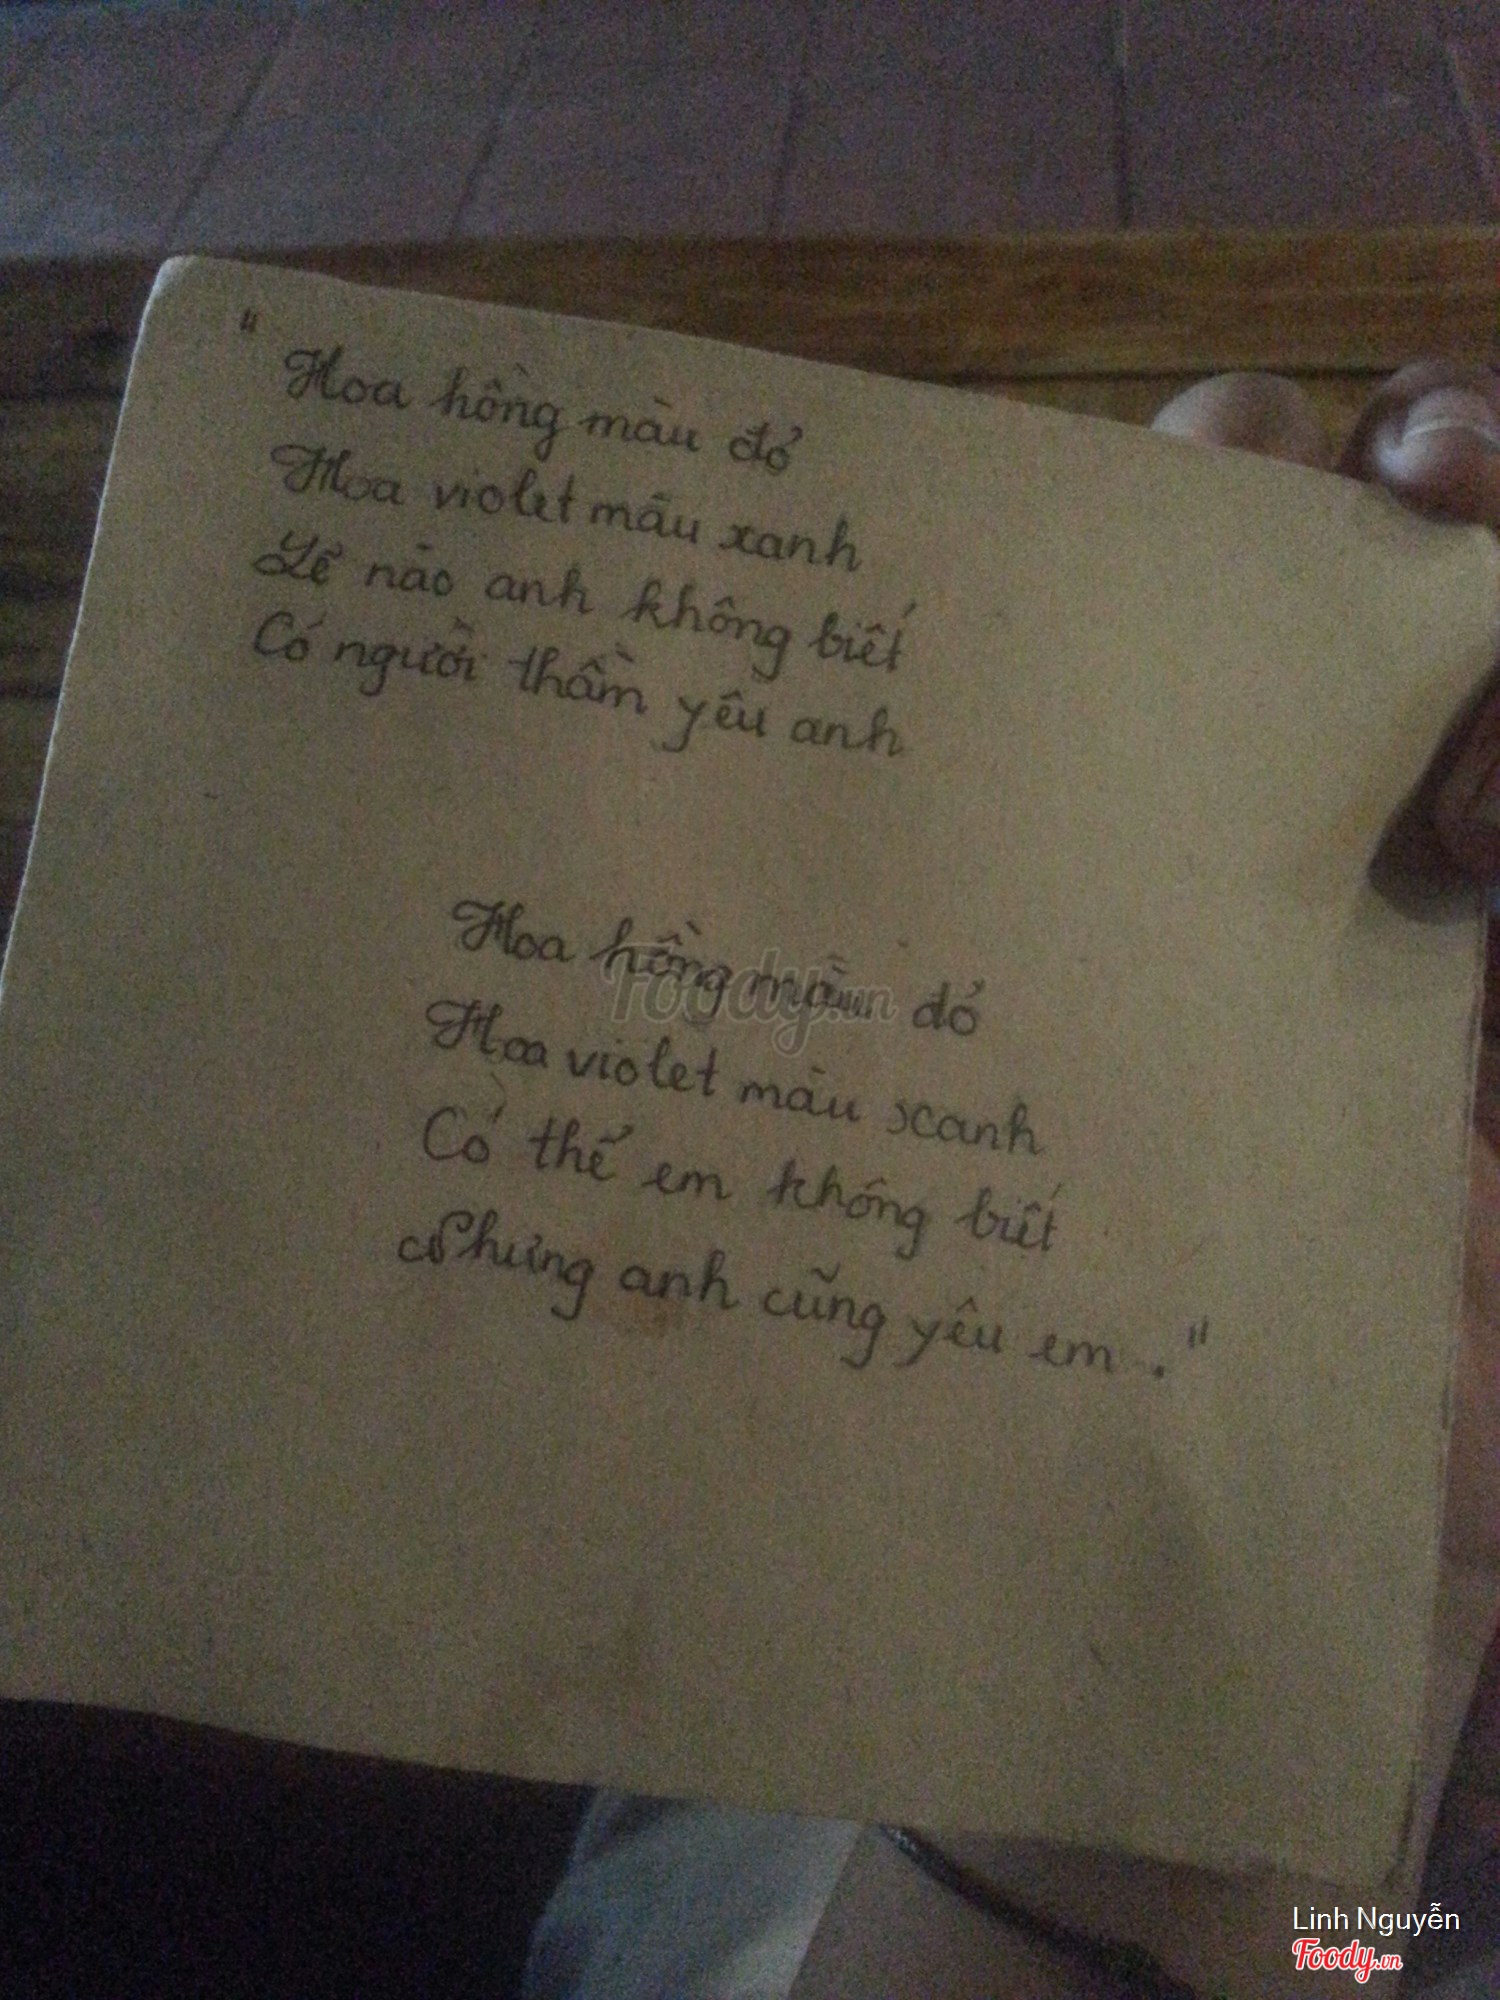 " Hoa hồng màu đỏ
Hoa violet màu xanh
Lẽ nào anh không biết
Có người thầm yêu anh
Hoa hồng màu đỏ
Hoa violet màu xanh
Có thể em không biết
Nhưng anh cũng yêu em . "
Foody.vn
Linh Nguyễn
Foody.vn